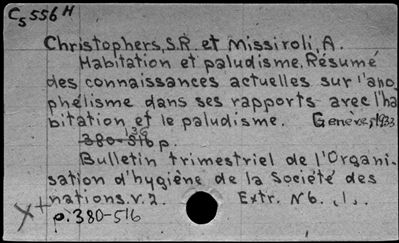 C5 556 H
Christophers, S.R. et Missiroli, A.
Habitation et paludisme. Résumé
des connaissances actuelles sur l'ano-
phélisme dans ses rapports avec l'ha
bitation et le paludisme. Genève, 1933
136
380-516 p.
Bulletin trimestriel de l'Organi-
sation d'hygiène de la Société des
nations. v. 2. Extr. N° 6. , 1.
p. 380-516